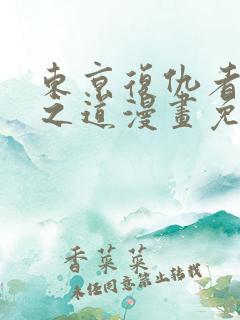 東京復仇者
之道漫畫免
香菜菜
未经同意禁止转载